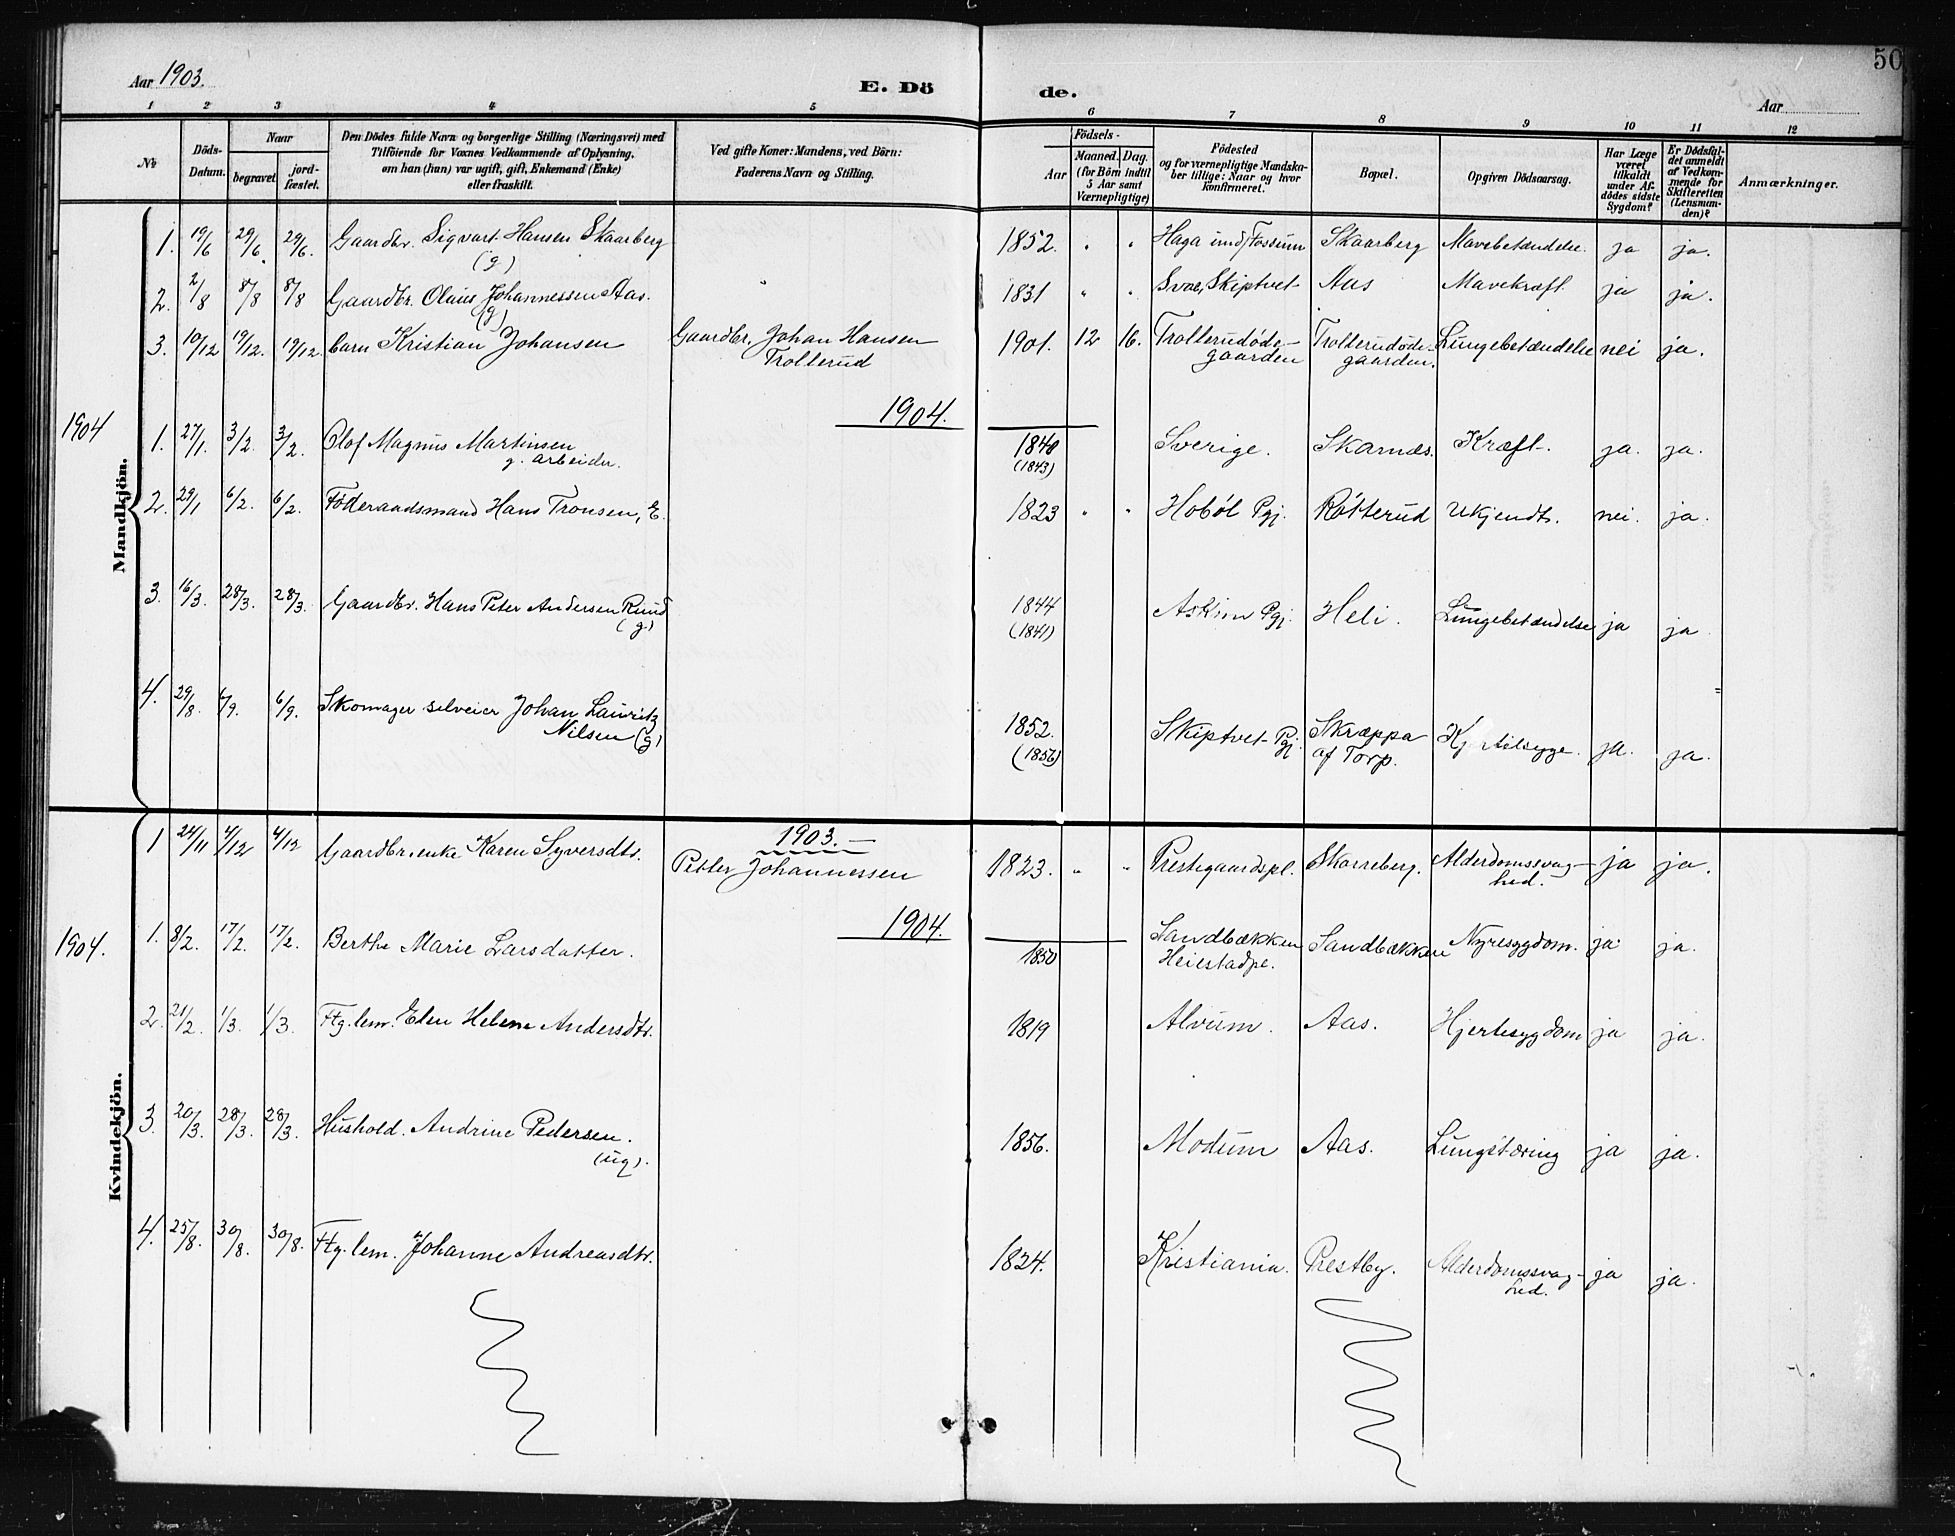 50
Aar 1903.
E. Dö
de.
Aar
1 2 3 4 5 6 7 8 9 10 11 12
No
Döds-Datum.
Naar
begravet.
jord-fæstet.
Den Dödes fulde Navn og borgerlige Stilling (Næringsvei) med
Tilföiende for Voxnes Vedkommende af Oplysning,
om han (hun) var ugift, gift, Enkemand (Enke)
eller fraskilt.
Ved gifte Koner: Mandens, ved Börn:
Faderens Navn og Stilling.
Födsels-
Aar
Maaned. Dag.
(for Börn indtil
5 Aar samt
Værnepligtige)
Födested
og for værnepligtige Mandska-
ber tillige: Naar og hvor
konfirmeret.
Bopæl.
Opgiven Dödsaarsag.
Har Læge
været
tilkaldt
under Af-
dödes sidste
Sygdom?
Er Dödsfal-
det anmeldt
af Vedkom-
mende for
Skifteretten
(Lensman-
den)?
Anmærkninger.
Mandkjön.
1. 19/6 29/6. 29/6. Gaardbr. Sigvart Hansen Skaarberg 1852. " " Haga und Fossum Skaarberg Mavebetændelse ja ja.
(g)
2. 2/8 8/8 8/8 Gaardbr. Olaus Johannessen Aas. " 1831 " " Svae, Skiptvet Aas Mavekræft ja ja.
(g)
3. 10/12 19/12. 19/12. barn Kristian Johansen Gaardbr. Johan Hansen 1901. 12 16. Trolterudøde- Trolterudøde- Lungebetændelse nei ja.
Trolterud gaarden gaarden.
1904 1904.
1. 27/1. 3/2. 3/2. Olof Magnus Martinsen 1840 Sverige. Skarnæs. Kræft. ja. ja.
g. arbeider. (1843)
2. 29/1 6/2. 6/2. Föderaadsmand Hans Tronsen, E. 1823 " " Hoböl Pgj. Rötterud Ukjendt. nei. ja.
3. 16/3. 28/3. 28/3. Gaardbr. Hans Peter Andersen Ruud 1844 Askim Pgj. Heli. Lungebetændelse ja ja
(g) (1841)
4. 29/8. 6/9. 6/9. Skomager selveier Johan Lauritz 1852. Skiptvet Pgj. Skræppa ja. ja.
Nilsen (g) (1856) af Torp.
Kvindekjön.
1903.
1 24/11 4/12 4/12 Gaardbr.enke Karen Syversdtr. Petter Johannessen 1823. " " Prestegaardspl. Skorreberg. Alderdomssvag- ja ja.
hed.
1904. 1904.
1. 8/2. 17/2. 17/2. Berthe Marie Larsdatter. 1850 Sandbækken Sandbækken Nyresygdom. ja ja.
Heiestadpl.
2. 21/2. 1/3. 1/3. Ftg.lem. Elen Helene Andersdtr. 1819 Alvum. Aas. Hjertesygdom ja ja.
3. 20/3. 28/3. 28/3. Hushold. Andrine Pedersen. 1856. Modum Aas. Lungetæring ja ja.
(ug).
4. 25/8. 30/8. 30/8. Ftg.lem. Johanne Andreasdtr. 1824. Kristiania. Prestby. Alderdomssvag- ja ja.
hed.